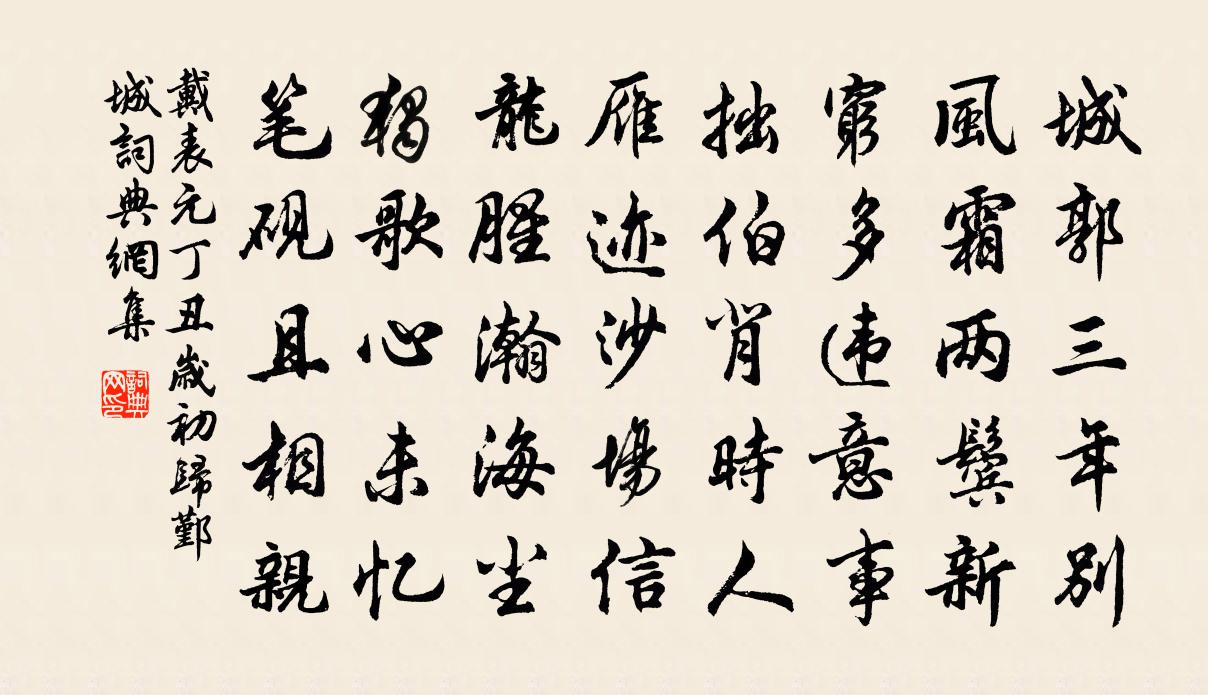 城郭三年别
風霜两鬓新
窮多违意事
拙伯背時人
雁迹沙場信
龍腥瀚海尘
獨歌心未忆
笔砚且相親
戴表元丁丑歲初歸鄞
城詞典網集
詞典網印